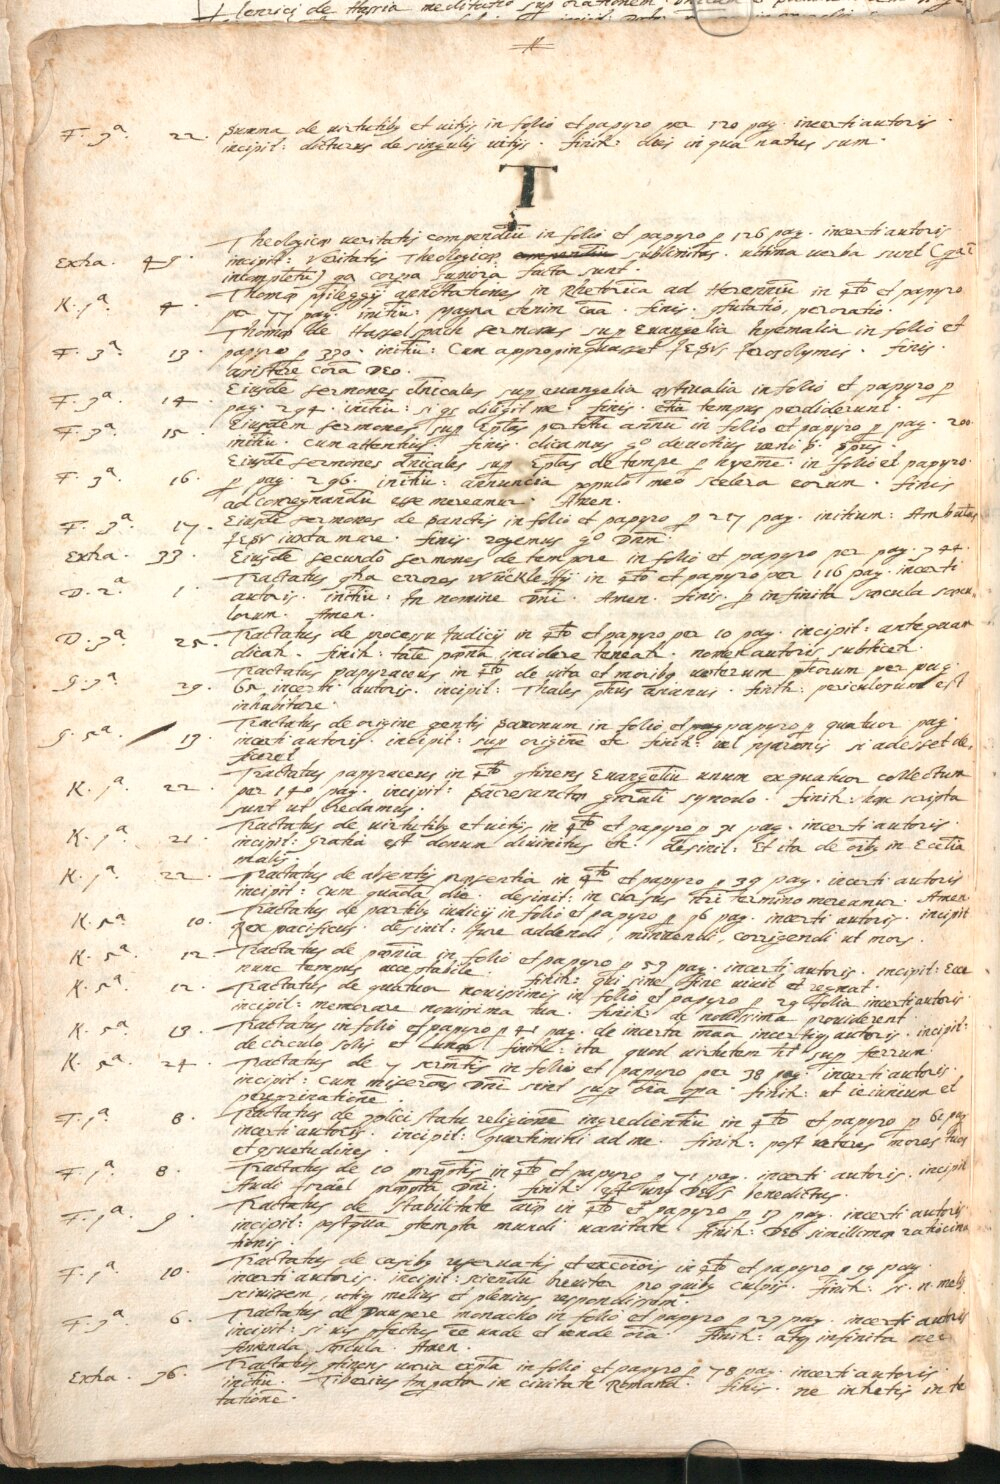 Henrici de Hassia meditatio sup orationem
F. 3ª. 22. Summa de virtutibꝫ et vitijs in folio et papyro per 120 pag. incerti autoris.
incipit: dicturus de singulis vitijs. finit: dies in qua natus sum.
T
Theologicæ veritatis compendiũ in folio et papyro p 126 pag. incerti autoris
Extra. 49. incipit: Veritatis Theologicæ sublimitas. ultima verba sunt
incompletũ) qa corpa iuniora facta sunt.
K. 1ª. 4. Thomæ annotationes in Rhetorica ad Herenniũ in 4to et papyro
per 77 pag. initiũ: etenim finis. peroratio.
Thomæ de Hasselpach sermones sup Evangelia hyemalia in folio et
F. 3ª. 13. papyro p 330. initiũ: Cum appropinquasset IESVS Ierosolymis. finis.
assistere corã DEO.
F. 3ª. 14. Eiusdẽ sermones dñicales sup evangelia æstivalia in folio et papyro p
pag. 294. initiũ: si qs diligit me. finis. tempus perdiderunt.
F. 3ª. 15. Eiusdem sermones sup Eplas per totũ annũ in folio et papyro p pag. 200
initiũ. Cum attentius. finis. dicamus go devotius veni
Eiusdẽ sermones dñicales sup Eplas de tempe p hyemẽ in folio et papyro
F. 3ª. 16. p pag. 296. initiũ: annuncia populo meo scelera eorum. finis
ad conregnandũ esse mereamur. Amen.
F. 3ª. 17. Eiusdẽ sermones de Sanctis in folio et papyro p 217 pag. initium: Ambulãs
IESVS iuxta mare. finis. rogemus go Dñm.
Extra. 33. Eiusdẽ secundo sermones de tempore in folio et papyro per pag. 344.
Tractatus ctra errores Wickleffij in 4to et papyro per 116 pag. incerti
D. 2ª. 1. autoris. initiũ: In nomine Dñi. Amen. finis. p infinita sæcula sæcu-
lorum. Amen.
D. 3ª. 25. Tractatus de processu iudicij in 4to et papyro per 10 pag. incipit: antequam
dicat. finit: talẽ pœnã incidere teneat. nomen autoris subticet.
Tractatus papyraceus in 4to de vita et moribꝫ veterum phorum per pag.
G. 3ª. 29. 65 incerti autoris. incipit: Thales phus asianus. finit: periculosum est
inhabitare.
Tractatus de origine gentis Saxonum in folio et papyro p quatuor pag.
G. 5ª. 13. incerti autoris. incipit: sup origine etc finit: vel si adesset de-
ficeret
Tractatus papyraceus in 4to cõtinens Evangeliũ unum ex quatuor collectum
K. 1ª. 22. per 140 pag. incipit: Sacrosanctæ gnrali synodo. finit: hæc scripta
sunt ut credamus.
Tractatus de virtutibꝫ et vitijs in 4to et papyro p 31 pag. incerti autoris.
K. 1ª. 21. incipit: Gratia est donum divinitus etc. desinit: Et ita de oĩbꝫ in Ecclia
malis.
K. 1ª. 22. Tractatus de absentis præsentia in 4to et papyro p 39 pag. incerti autoris
incipit: cum quadã die. desinit: in cursus termino mereamur. Amen
K. 5ª. 10. Tractatus de partibꝫ iudicij in folio et papyro p 36 pag. incerti autoris. incipit
Rex pacificus. desinit: iure addendi, minuendi, corrigendi ut mors.
K. 5ª. 12. Tractatus de pœnitentia in folio et papyro p 59 pag. incerti autoris. incipit: Ecce
nunc tempus acceptabile. finit: qui sine fine vivit et regnat.
K. 5ª. 12. Tractatus de quatuor novissimis in folio et papyro p 29 folia incerti autoris
incipit: memorare novissima tua. finit: ac novissima providerent.
K. 5ª. 13. Tractatus in folio et papyro p 41 pag. de incerta mãa incertiqꝫ autoris. incipit:
de circulo solis et lunæ finit: ita quod virtutem sup ferrum.
K. 5ª. 24. Tractatus de 7 sacramtis in folio et papyro per 38 pag. incerti autoris.
incipit: cum miseratões Dñi sint sup oĩa opa. finit: ut ieiunium et
peregrinatione.
F. 1ª. 8. Tractatus de 3plici statu religionẽ ingredientiũ in 4to et papyro p 61 pag
incerti autoris. incipit: ad me. finit: post veteres mores tuos
et cõsuetudines.
F. 1ª. 8. Tractatus de 10 præceptis in 4to et papyro p 71 pag. incerti autoris. incipit
Audi Israël præcepta Dñi. finit: DEVS benedictus.
F. 1ª. 9. Tractatus de stabilitate aĩæ in 4to et papyro p 17 pag. incerti autoris
incipit: postquã ctempta mundi vanitate finit: DEO simillimæ ratiocina
tionis.
Tractatus de casibꝫ reservatis et in 4to et papyro p 19 pag.
F. 1ª. 10. incerti autoris. incipit: sciendũ breviter pro quibꝫ culpis. finit: si n. meliꝫ
scivissem, utiqꝫ melius et plenius respondissem.
F. 3ª. 6. Tractatus de Paupere monacho in folio et papyro p 27 pag. incerti autoris
incipit: si vis pfectus eẽ vade et vende oĩa. finit: atqꝫ infinita nec
finienda sæcula. Amen.
Tractatus cõtinens varia expla in folio et papyro p 78 pag. incerti autoris.
Extra. 36. initiũ. Tiberius Impator in civitate Romana. finis. ne intretis in te
tatione.